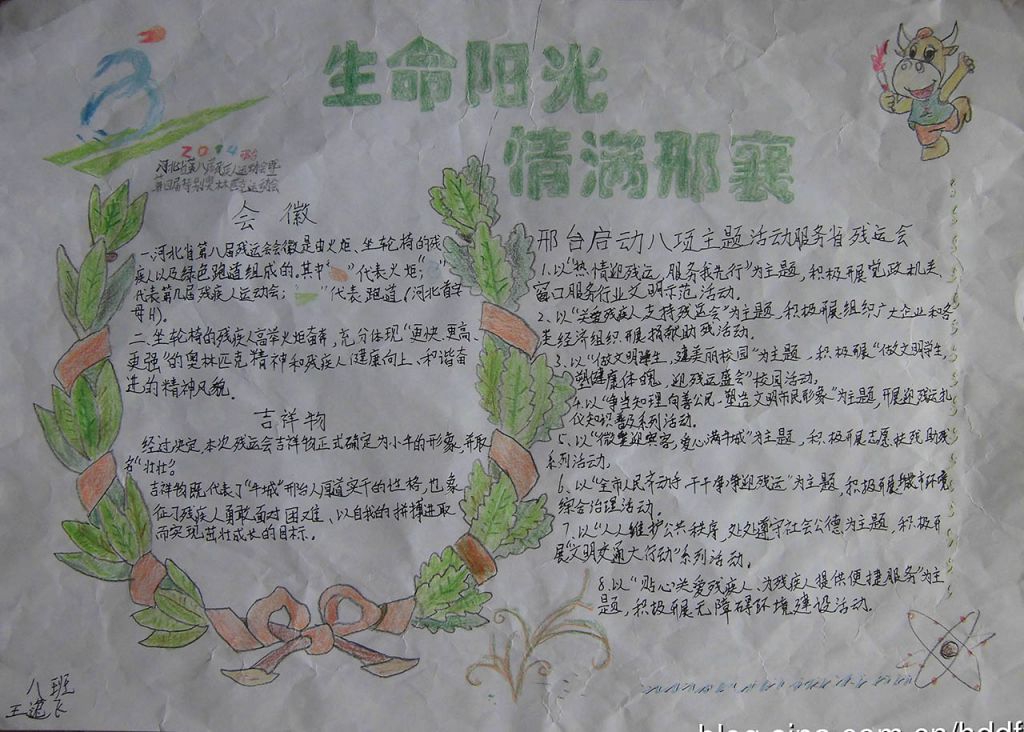 生命阳光
情满邢襄
2014 邢台
河北省第八届残疾人运动会暨
第四届特别奥林匹克运动会
会徽
一、河北省第八届残运会会徽是由火炬、坐轮椅的残
疾人以及绿色跑道组成的,其中“ ”代表火炬;“ ”
代表第八届残疾人运动会;“ ”代表跑道(河北首字
母H).
二、坐轮椅的残疾人高举火炬奔,充分体现“更快、更高、
更强”的奥林匹克精神和残疾人健康向上、和谐奋
进的精神风貌.
吉祥物
经过决定,本次残运会吉祥物正式确定为小牛的形象,并取
名“壮壮”.
吉祥物既代表了“牛城”邢台人厚道实干的性格,也象
征了残疾人勇敢面对困难、以自我的拼搏进取
而实现茁壮成长的目标.
邢台启动八项主题活动服务省残运会
1.以“热情迎残运,服务我先行”为主题,积极开展党政机关、
窗口服务行业文明示范活动.
2、以“关爱残疾人支持残运会”为主题,积极开展组织广大企业和各
类经济组织开展捐献助残活动.
3、以“做文明学生,建美丽校园”为主题,积极开展“做文明学生,
塑健康体魄,迎残运盛会”校园活动.
4、以“争当知理向善公民,塑造文明市民形象”为主题,开展迎残运礼
仪知识普及系列活动.
5、以“微笑迎宾客,爱心满牛城”为主题,积极开展志愿扶残助残
系列活动.
6、以“全市人民齐动手,干干净净迎残运”为主题,积极开展城市环境
综合治理活动.
7、以“人人维护公共秩序,处处遵守社会公德”为主题,积极开
展“文明交通大行动”系列活动.
8.以“贴心关爱残疾人、为残疾人提供便捷服务”为主
题,积极开展无障碍环境建设活动.
八班
blog.sina.com.cn/hddf